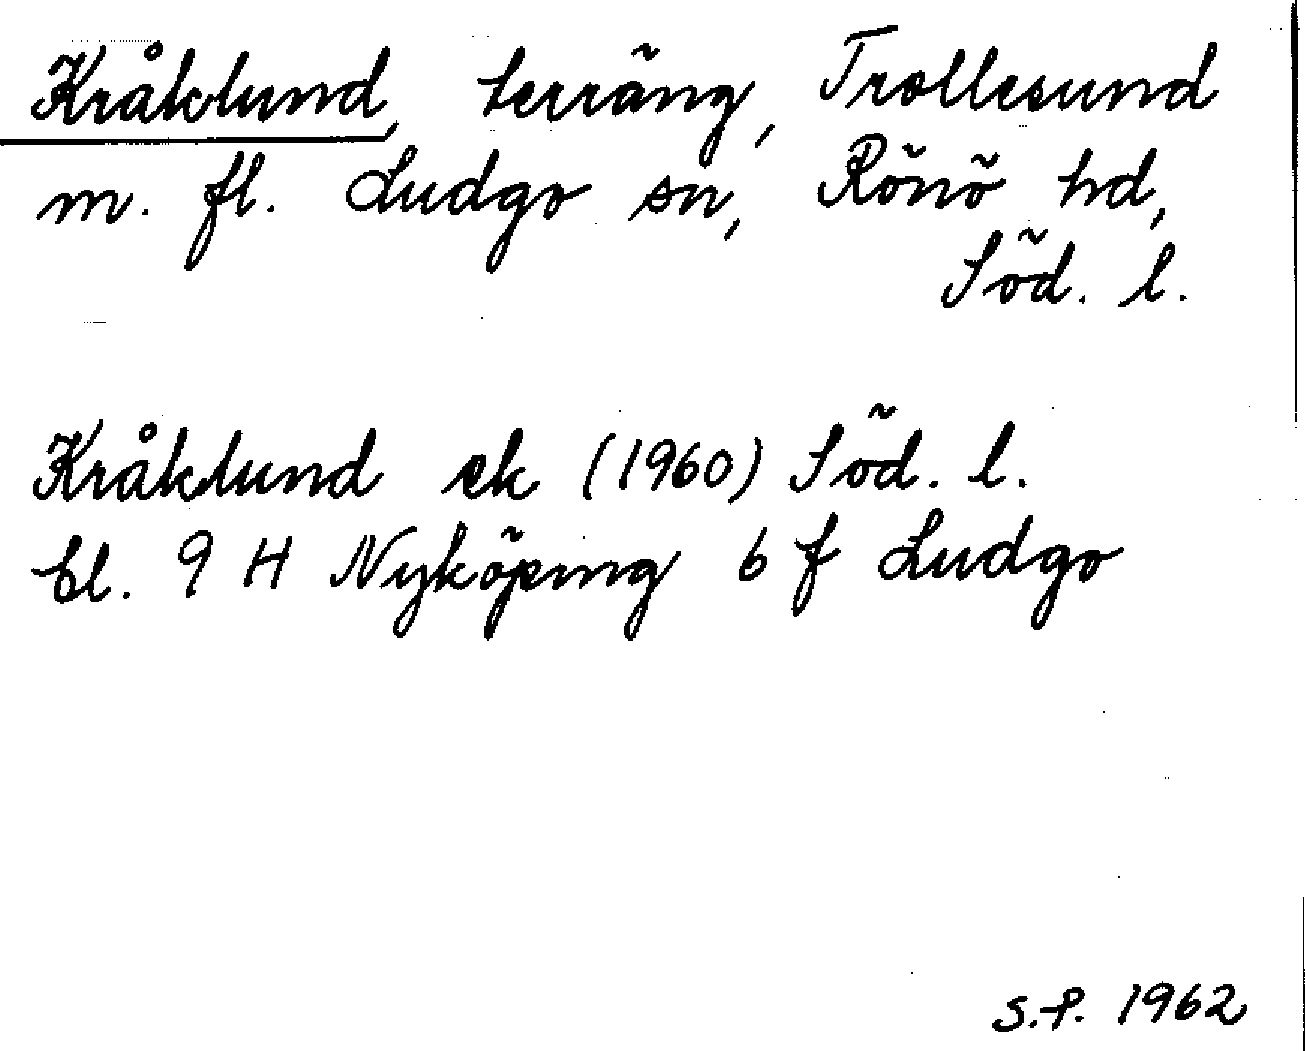 Kråklund, terräng, Trollesund
m. fl. Ludgo sn, Rönö hd,
Söd. l.
Kråklund ek (1960) Söd. l.
bl. 9 H Nyköping 6 f Ludgo
S.P. 1962